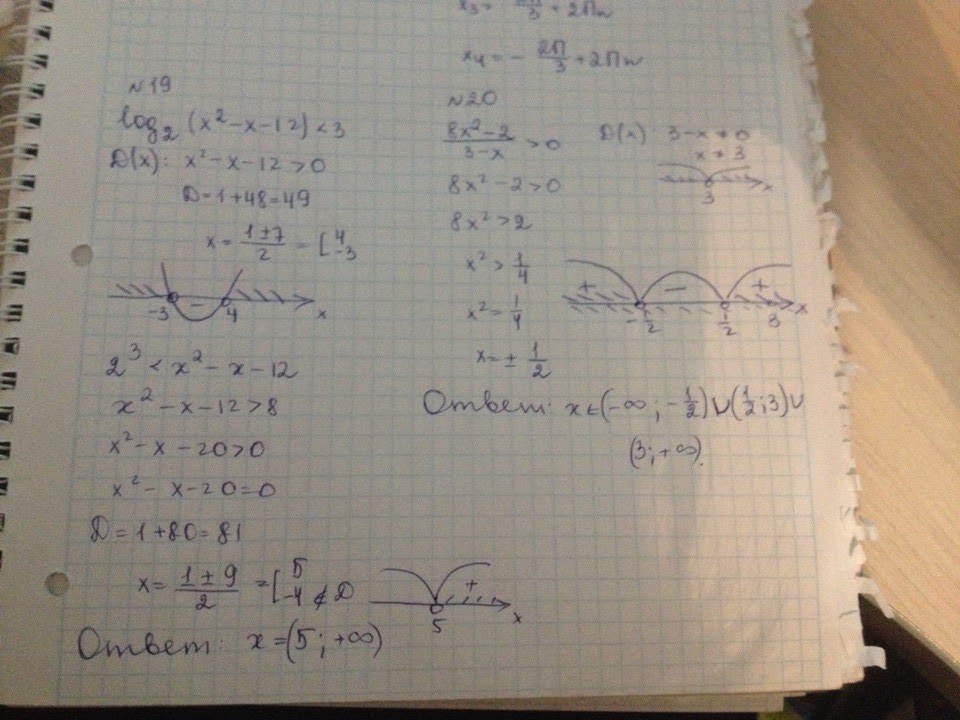 x₄ = - 2π/3 + 2πn
№19
log₂ (x² - x - 12) < 3
D(x): x² - x - 12 > 0
D = 1 + 48 = 49
x = (1 ± 7)/2 = [4 -3
-3 - 4 x
2³ < x² - x - 12
x² - x - 12 > 8
x² - x - 20 > 0
x² - x - 20 = 0
D = 1 + 80 = 81
x = (1 ± 9)/2 = [5 -4 ∉ D
+ 5 x
Ответ: x = (5; +∞)
№20
(8x² - 2)/(3 - x) > 0
D(x): 3 - x ≠ 0
x ≠ 3
3 x
8x² - 2 > 0
8x² > 2
x² > 1/4
x² = 1/4
x = ± 1/2
+ - + -1/2 1/2 3 x
Ответ: x ∈ (-∞; -1/2) ∪ (1/2; 3) ∪
(3; +∞).